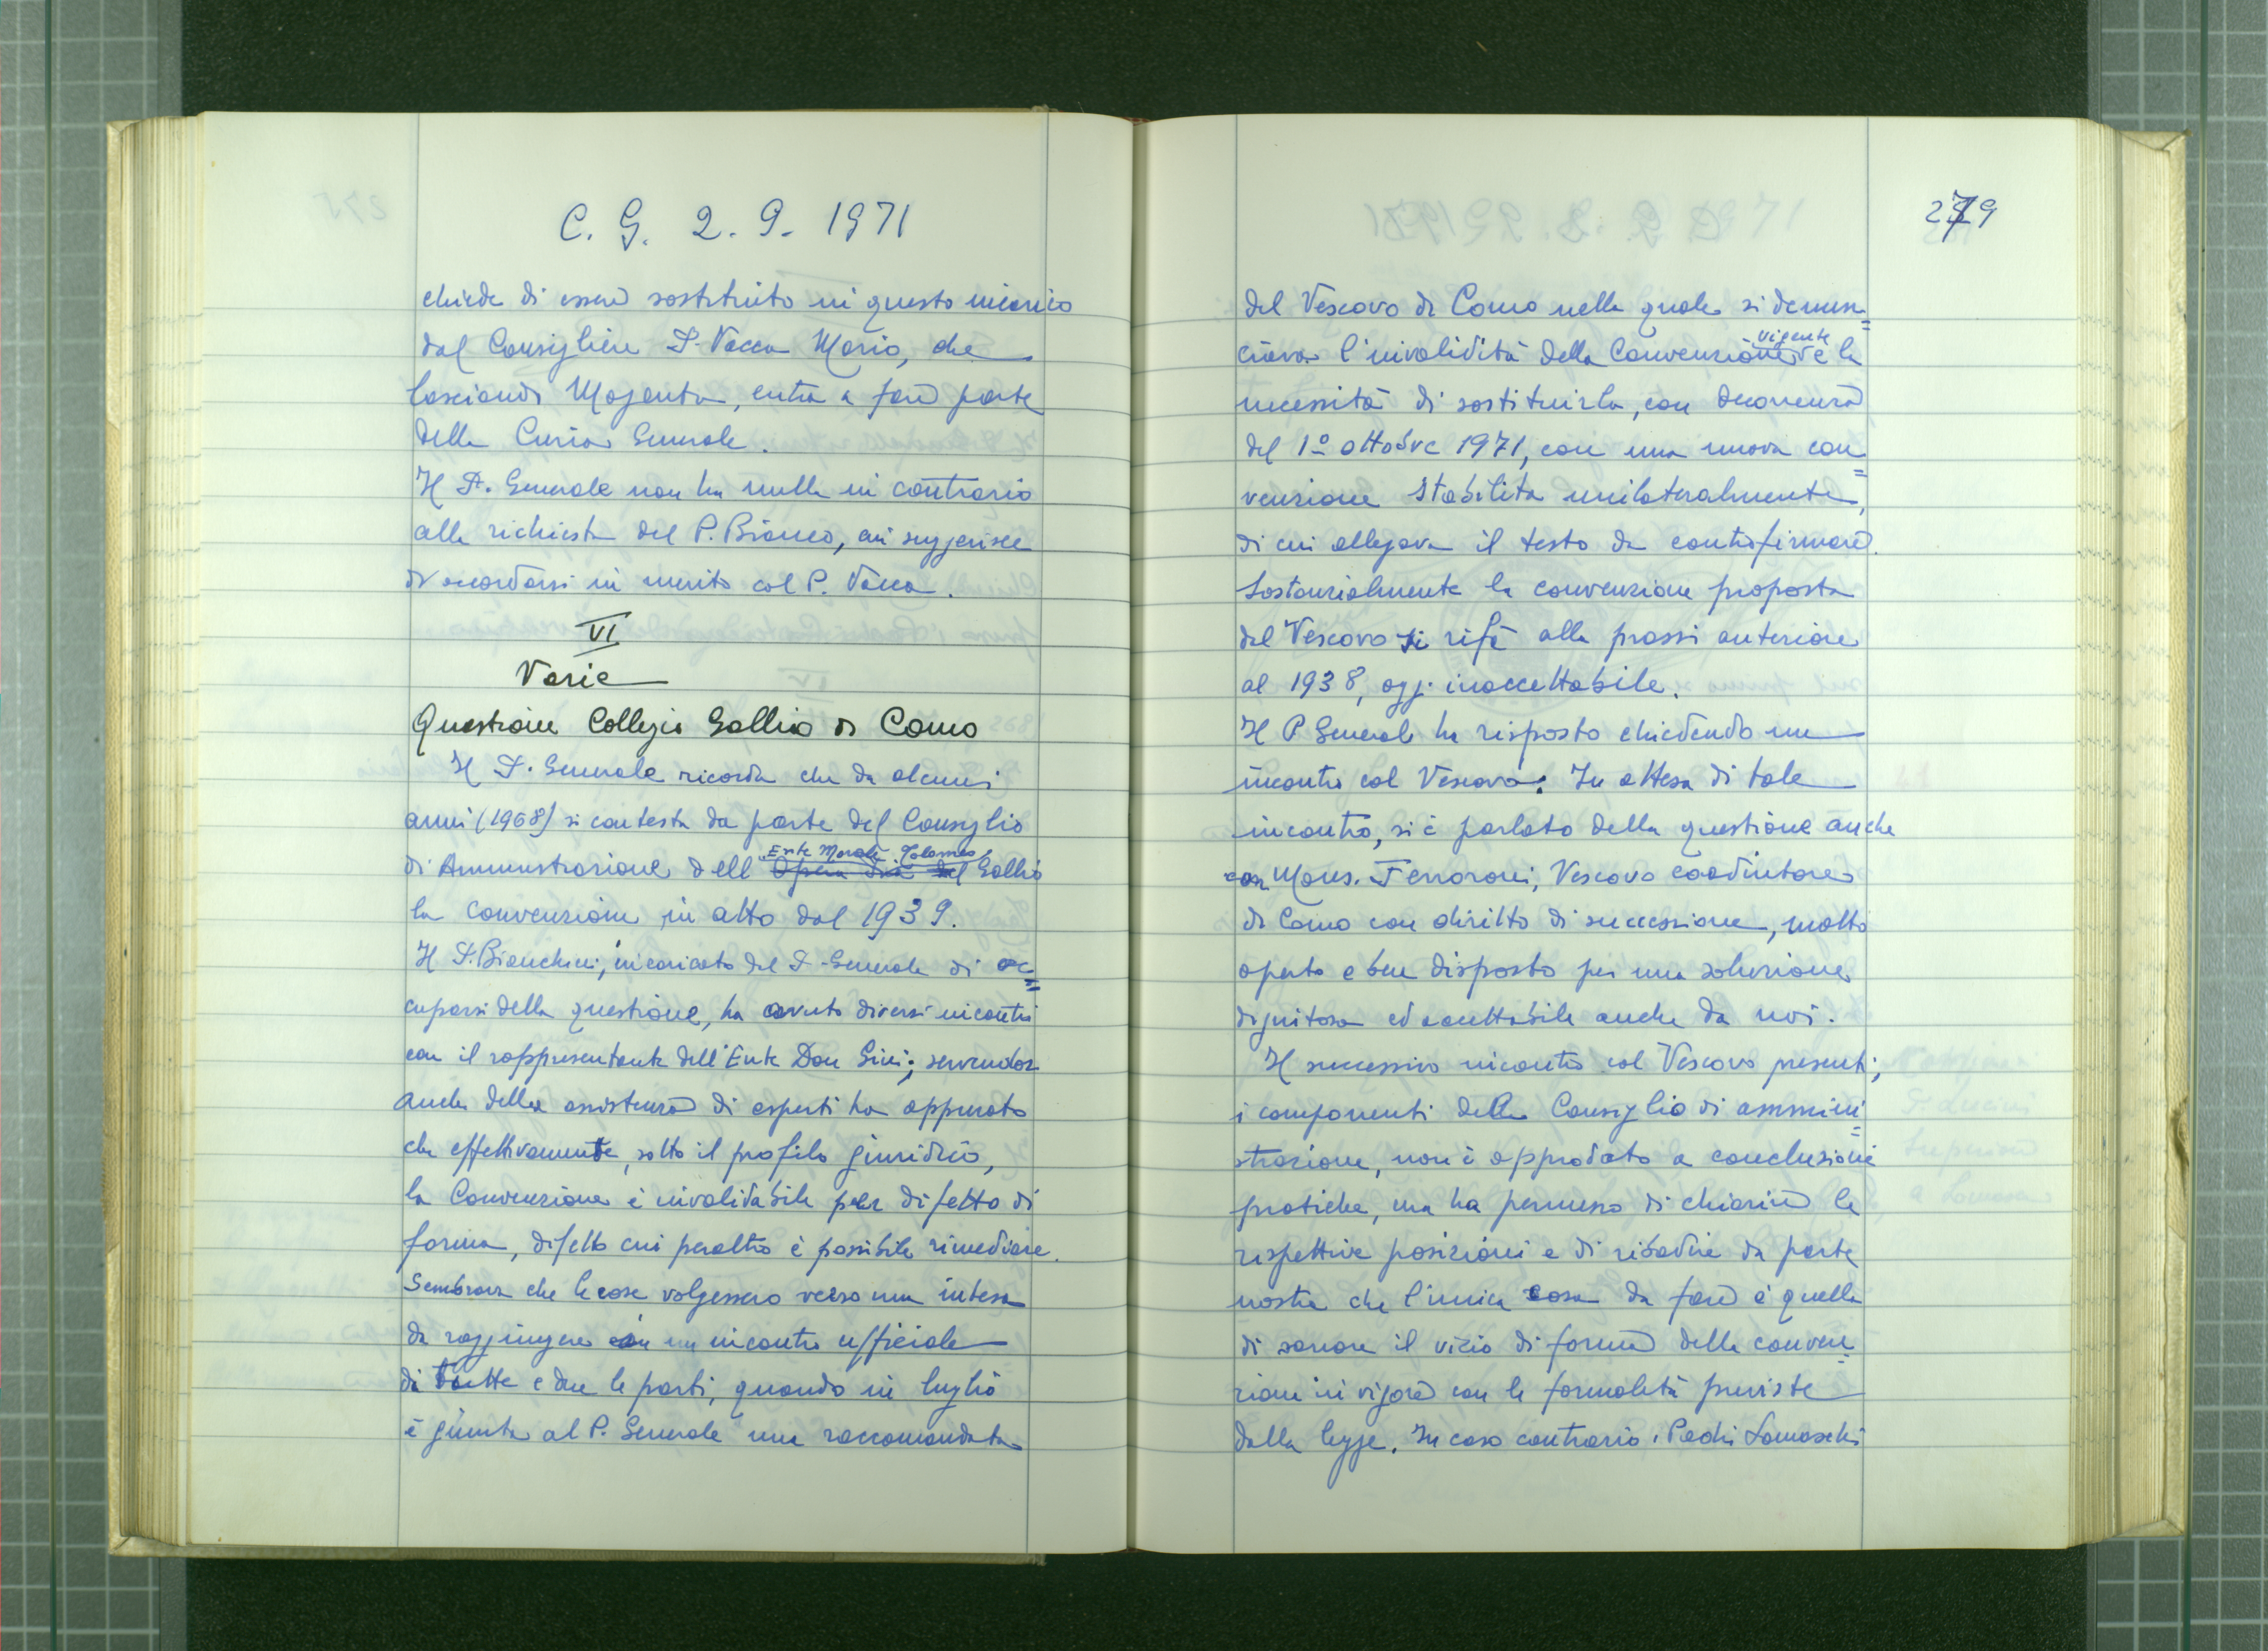 C. G. 2. 9. 1971
chiede di essere sostituito in questo incarico
dal Consigliere P. Vacca Mario, che
lasciando Magenta, entra a fare parte
della Curia Generale.
Il P. Generale non ha nulla in contrario
alla richiesta del P. Bianco, cui suggerisce
di accordarsi in merito col P. Vacca.
VI
Varie
Questione Collegio Gallio di Como
Il P. Generale ricorda che da alcuni
anni (1968) si contesta da parte del Consiglio
Ente Morale Tolomeo
di Amministrazione dell' Opera Pia del Gallio
la convenzione in atto dal 1939.
Il P. Bianchini, incaricato dal P. Generale di oc=
cuparsi della questione, ha avuto diversi incontri
con il rappresentante dell'Ente Don Gini; servendosi
anche della assistenza di esperti ha appurato
che effettivamente, sotto il profilo giuridico,
la Convenzione è invalidabile per difetto di
forma, difetto cui peraltro è possibile rimediare.
Sembrava che le cose volgessero verso una intesa
da raggiungere con un incontro ufficiale
di tutte e due le parti, quando in luglio
è giunta al P. Generale una raccomandata
279
del Vescovo di Como nella quale si denun=
vigente
ciava l'invalidità della Convenzione e la
necessità di sostituirla, con decorrenza
del 1º ottobre 1971, con una nuova con=
venzione stabilita unilateralmente,
di cui allegava il testo da controfirmare.
Sostanzialmente la convenzione proposta
dal Vescovo si rifà alla prassi anteriore
al 1938, oggi inaccettabile.
Il P. Generale ha risposto chiedendo un
incontro col Vescovo. In attesa di tale
incontro, si è parlato della questione anche
con Mons. Ferraroni, Vescovo coadiutore
di Como con diritto di successione, molto
aperto e ben disposto per una soluzione
dignitosa ed accettabile anche da noi.
Il successivo incontro col Vescovo presenti,
i componenti della Consiglio di ammini=
strazione, non è approdato a conclusioni
pratiche, ma ha permesso di chiarire le
rispettive posizioni e di ribadire da parte
nostra che l'unica cosa da fare è quella
di sanare il vizio di forma della conven=
zione in vigore con le formalità previste
dalla legge. In caso contrario i Padri Somaschi